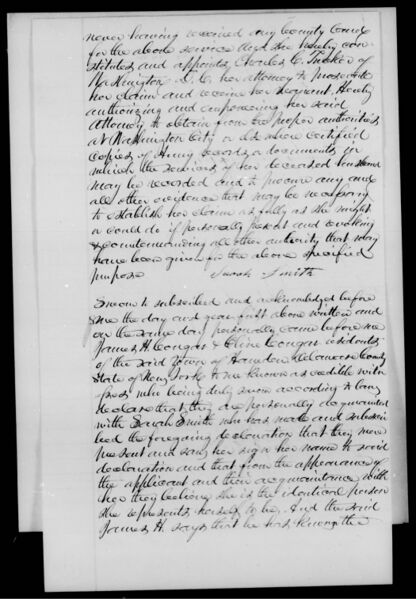 never having received any bounty land
for the above service and she hereby con
stitutes and appoints Charles C. Tucker of
Washington D.C. her attorney to prosecute
her claim and receive her warrant. Hereby
authorizing and empowering her said
Attorney to obtain from the proper authorities
at Washington City or elsewhere certified
Copies of Army records or documents in
which the services of her deceased husband
may be recorded and to procure any and
all other evidence that may be necessary
to establish her claim as fully as she might
or could do if personally present and revoking
& countermanding all other authority that may
have been given for the above specified
purpose Sarah Smith
Sworn to subscribed and acknowledged before
me the day and year first above written and
on the same day personally came before me
James H. & residents
of the said Town of Hamden Delaware County
State of New York to me known as credible witn
esses who being duly sworn according to law
declare that they are personally acquainted
with Sarah Smith who has made and subscri
bed the foregoing declaration that they were
present and saw her sign her name to said
declaration and that from the appearance of
the applicant and their acquaintance with
her they believe she is the identical person
she represents herself to be. And the said
James H. says that he has known the